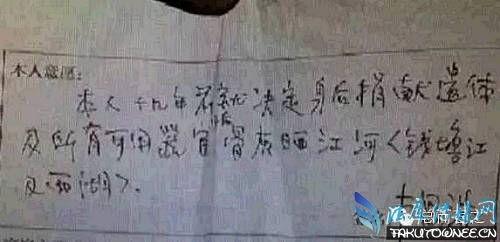 本人意愿：
本人十九年前就决定身后捐献遗体
及所有可用器官骨灰晒江河<钱塘江
及西湖>.
汽车保障网
TAKUTOWNEE.CN